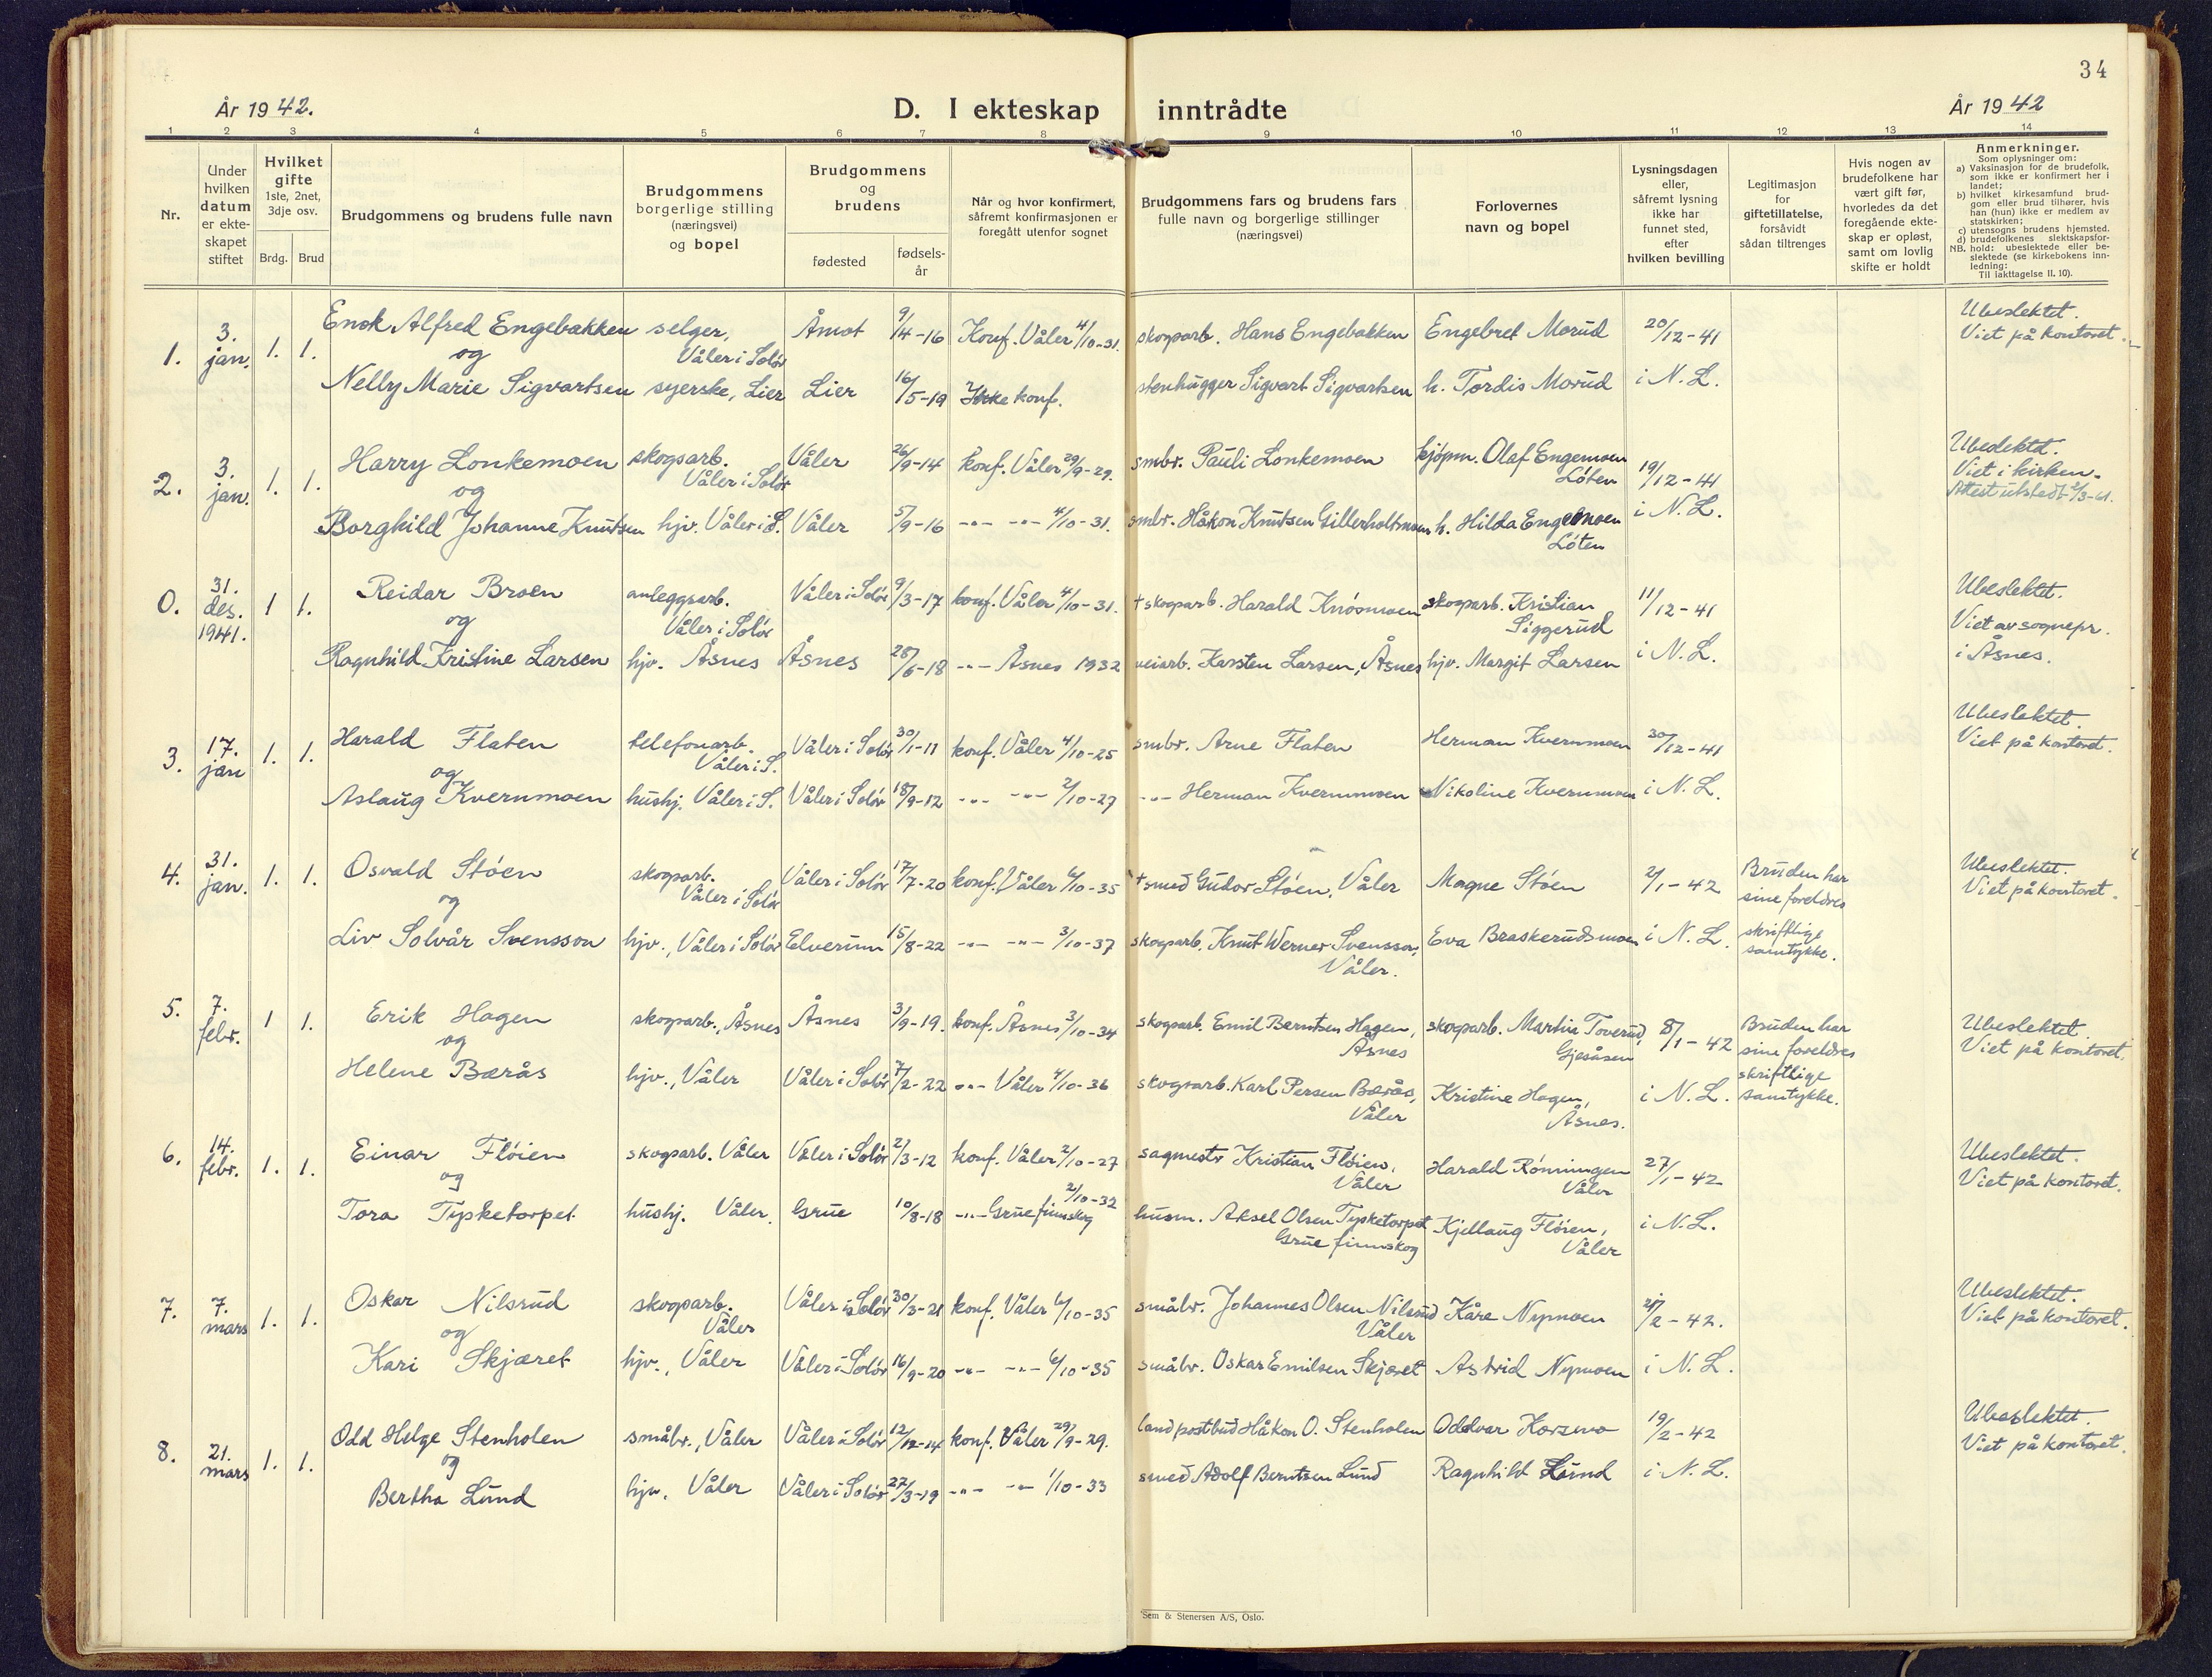 34
År 1942.
D. I ekteskap inntrådte
År 1942
1 2 3 4 5 6 7 8 9 10 11 12 13 14
Nr.
Under
hvilken
datum
er ekte-
skapet
stiftet
Hvilket
gifte
1ste, 2net,
3dje osv.
Brdg. Brud
Brudgommens og brudens fulle navn
Brudgommens
borgerlige stilling
(næringsvei)
og bopel
Brudgommens
og
brudens
fødested
fødsels-
år
Når og hvor konfirmert,
såfremt konfirmasjonen er
foregått utenfor sognet
Brudgommens fars og brudens fars
fulle navn og borgerlige stillinger
(næringsvei)
Forlovernes
navn og bopel
Lysningsdagen
eller,
såfremt lysning
ikke har
funnet sted,
efter
hvilken bevilling
Legitimasjon
for
giftetillatelse,
forsåvidt
sådan tiltrenges
Hvis nogen av
brudefolkene har
vært gift før,
hvorledes da det
foregående ekte-
skap er opløst,
samt om lovlig
skifte er holdt
Anmerkninger.
Som oplysninger om:
a) Vaksinasjon for de brudefolk,
som ikke er konfirmert her i
landet;
b) hvilket kirkesamfund brud-
gom eller brud tilhører, hvis
han (hun) ikke er medlem av
statskirken;
c) utensogns brudens hjemsted.
d) brudefolkenes slektskapsfor-
NB. hold: ubeslektede eller be-
slektede (se kirkebokens inn-
ledning:
Til iakttagelse II. 10).
1. 3. jan. 1. 1. Enok Alfred Engebakken selger, Våler i Solør Åmot 9/4-16 Konf. Våler 4/10-31. skogsarb. Hans Engebakken Engebret Morud 20/12-41 Ubeslektet. Viet på kontoret.
og
Nelly Marie Sigvartsen syerske, Lier Lier 16/5-19 Ikke konf. stenhugger Sigvart Sigvartsen h. Tordis Morud i N. L.
2. 3. jan. 1. 1. Harry Lonkemoen skogsarb. Våler i Solør Våler 26/9-14 konf. Våler 29/9-29. smbr. Pauli Lonkemoen kjøpm. Olaf Engemoen Løten 19/12-41 Ubeslektet. Viet i kirken. Attest utstedt 2/3-61.
og
Borghild Johanne Knutsen hjv. Våler i S. Våler 5/9-16 -"- -"- 4/10-31. smbr. Håkon Knutsen Gillerholtmoen h. Hilda Engemoen Løten i N. L.
0. 31. des. 1941. 1 1. Reidar Broen anleggsarb. Våler i Solør Våler i Solør 9/3-17 konf. Våler 4/10-31. + skogsarb. Harald Knösmoen skogsarb. Kristian Siggerud 11/12-41 Ubeslektet. Viet av sognepr. i Åsnes.
og
Ragnhild Kristine Larsen hjv. Åsnes Åsnes 28/6-18 -"- Åsnes 1932 veiarb. Karsten Larsen, Åsnes hjv. Margit Larsen i N. L.
3. 17. jan 1. 1. Harald Flaten telefonarb. Våler i S. Våler i Solør 30/1-11 konf. Våler 4/10-25 smbr. Arne Flaten Herman Kvernmoen 30/12-41 Ubeslektet. Viet på kontoret.
og
Aslaug Kvernmoen hushj. Våler i S. Våler i Solør 18/9-12 -"- -"- 2/10-27 -"- Herman Kvernmoen Nikoline Kvernmoen i N. L.
4. 31. jan. 1. 1. Osvald Støen skogsarb. Våler i Solør Våler i Solør 17/7-20 konf. Våler 6/10-35 + smed Gudor Støen, Våler Magne Støen 2/1-42 Bruden har sine foreldres Ubeslektet. Viet på kontoret.
og
Liv Solvår Svensson hjv., Våler i Solør Elverum 15/8-22 -"- -"- 3/10-37 skogsarb. Knut Werner Svensson, Våler. Eva Braskerudsmoen i N. L. skriftlige samtykke.
5. 7. febr. 1 1. Erik Hagen skogsarb., Åsnes Åsnes 3/9-19. konf. Åsnes 3/10-34 skogsarb. Emil Berntsen Hagen, Åsnes skogsarb. Martin Toverud, Gjesåsen 8/1-42 Bruden har sine foreldres Ubeslektet. Viet på kontoret.
og
Helene Bærås hjv., Våler Våler i Solør 7/2-22 -"- Våler 4/10-36 skogsarb. Karl Persen Bærås, Våler Kristine Hagen, Åsnes. i N. L. skriftlige samtykke.
6. 14. febr. 1. 1. Einar Fløien skogsarb. Våler Våler i Solør 2/3-12 konf. Våler 2/10-27 sagmestr Kristian Fløien, Våler Harald Rønningen Våler 27/1-42 Ubeslektet. Viet på kontoret.
og
Tora Tysketorpet hushj. Våler. Grue 10/8-18 -"- Grue finnskog 2/10-32 husm. Aksel Olsen Tysketorpet Grue finnskog Kjellaug Fløien, Våler i N. L.
7. 7. mars 1. 1. Oskar Nilsrud skogsarb. Våler Våler i Solør 30/3-21 konf. Våler 6/10-35 småbr. Johannes Olsen Nilsrud Våler Kåre Nymoen /2-42. Ubeslektet. Viet på kontoret.
og
Kari Skjæret hjv., Våler Våler i Solør 16/9-20 -"- -"- 6/10-35 småbr. Oskar Emilsen Skjæret Astrid Nymoen i N. L.
8. 21. mars 1. 1. Odd Helge Stenholen småbr., Våler Våler i Solør 12/12-14 konf. Våler 29/9-29. landpostbud Håkon O. Stenholen Oddvar Korsmo 19/2-42 Ubeslektet. Viet på kontoret.
og
Bertha Lund hjv. Våler Våler i Solør 27/3-19 -"- -"- 1/10-33 smed Adolf Berntsen Lund Ragnhild Lund i N. L.
Sem & Stenersen A/S, Oslo.